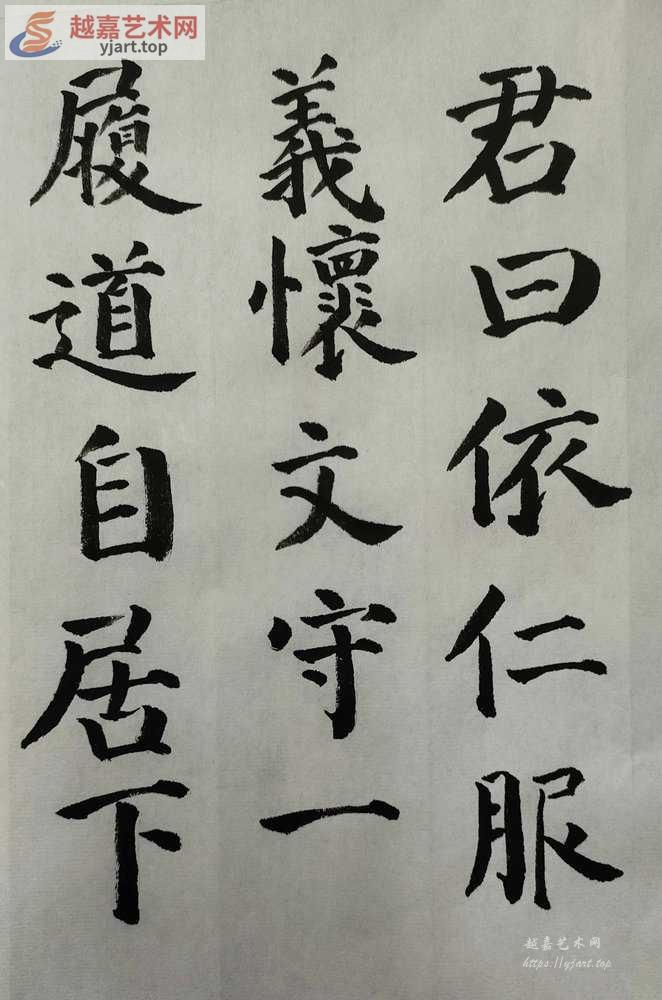 越嘉艺术网
yjart.top
君曰依仁服
義懷文守一
履道自居下
越嘉艺术网
https://yjart.top